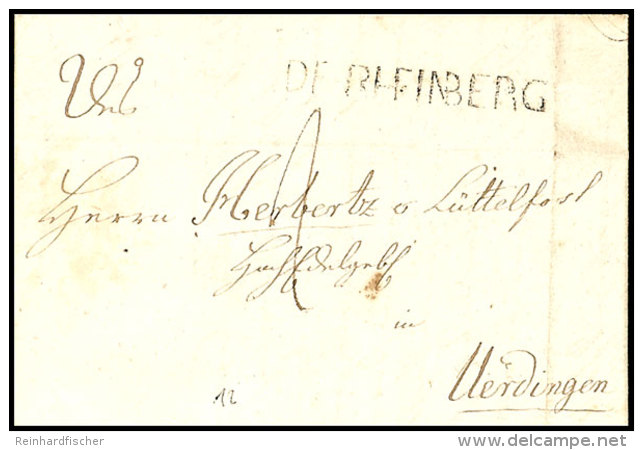 DE RHEINBERG
Herrn Herbertz & Lüttelforst
Hochedelgeb
in
Uerdingen
12
Reinhardfischer
delcampe.net